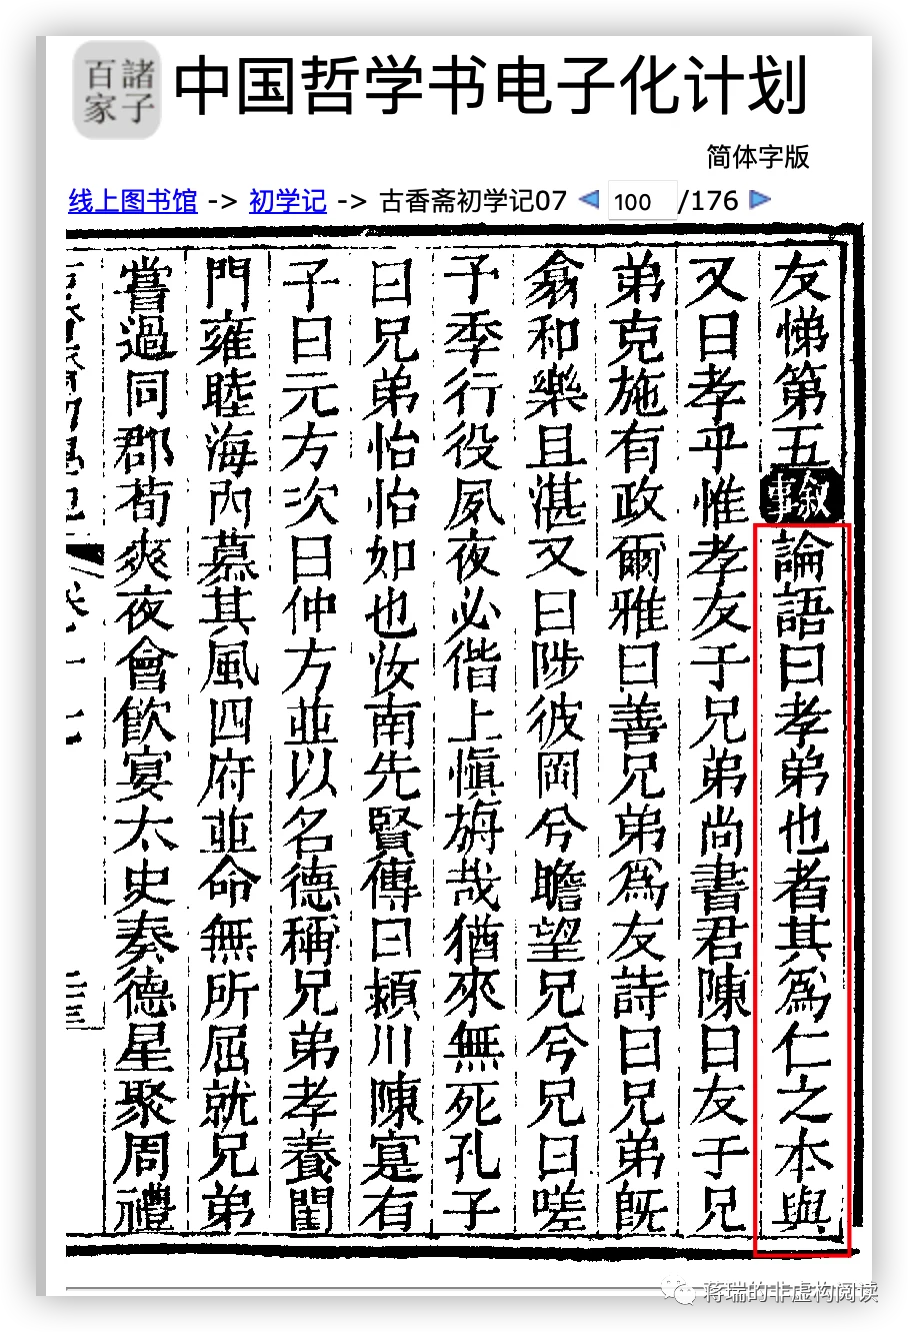 諸子百家
中国哲学书电子化计划
简体字版
线上图书馆 -> 初学记 -> 古香斋初学记07 100 /176
友悌第五叙事論語曰孝弟也者其爲仁之本與
又曰孝乎惟孝友于兄弟尚書君陳曰友于兄
弟克施有政爾雅曰善兄弟爲友詩曰兄弟既
翕和樂且湛又曰陟彼岡兮瞻望兄兮兄曰嗟
予季行役夙夜必偕上愼旃哉猶來無死孔子
曰兄弟怡怡如也汝南先賢傳曰潁川陳寔有
子曰元方次曰仲方並以名德稱兄弟孝養閨
門雍睦海內慕其風四府並命無所屈就兄弟
嘗過同郡荀爽夜會飲宴太史奏德星聚周禮
蒋瑞的非虚构阅读